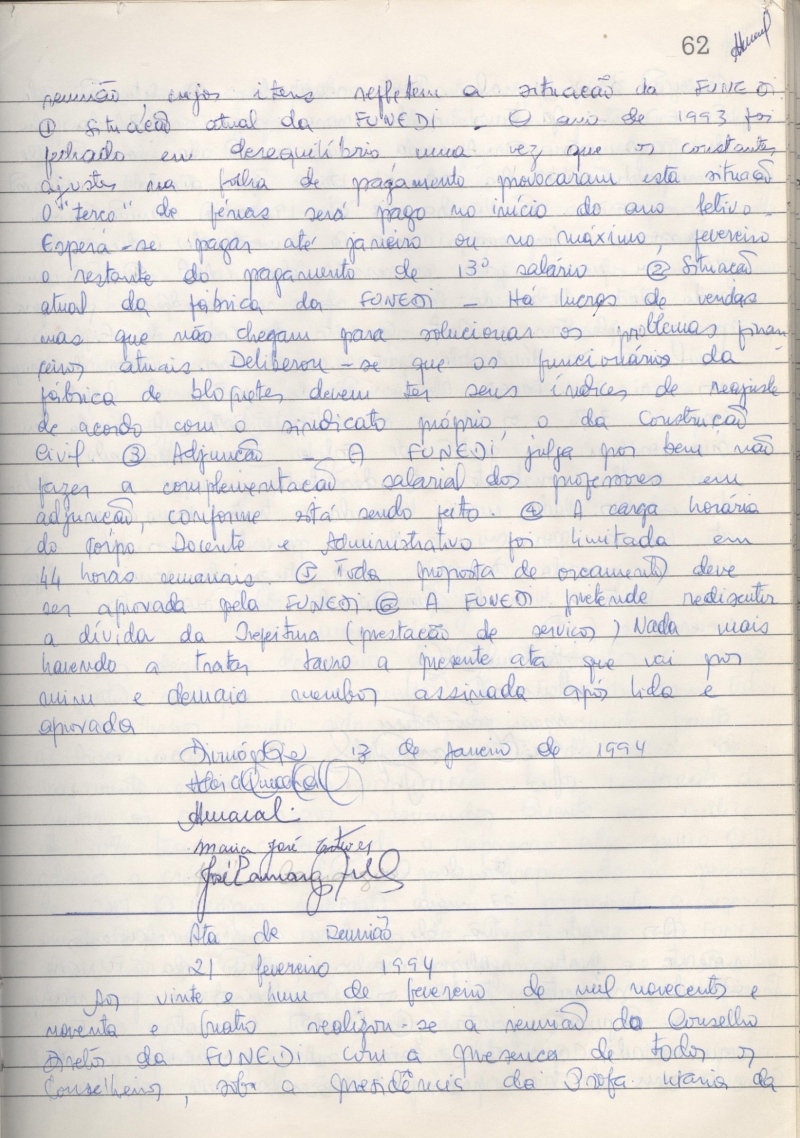 62 Amaral
reunião, cujos itens refletem a situação da FUNEDI
① Situação atual da FUNEDI - O ano de 1993 foi
fechado em desequilíbrio uma vez que os constantes
ajustes na folha de pagamento provocaram esta situação
O "terço" de férias será pago no início do ano letivo.
Espera-se pagar até janeiro ou no máximo, fevereiro
o restante do pagamento de 13º salário ② Situação
atual da fábrica da FUNEDI - Há lucros de vendas
mas que não chegam para solucionar os problemas finan
ceiros atuais. Deliberou-se que os funcionários da
fábrica de bloquetes devem ter seus índices de reajuste
de acordo com o sindicato próprio, o da Construção
Civil. ③ Adjunção - A FUNEDI julga por bem não
fazer a complementação salarial dos professores em
adjunção, conforme está sendo feito. ④ A carga horária
do Corpo Docente e Administrativo foi limitada em
44 horas semanais. ⑤ Toda proposta de orçamento deve
ser aprovada pela FUNEDI ⑥ A FUNEDI pretende rediscutir
a dívida da Prefeitura (prestação de serviços) Nada mais
havendo a tratar lavro a presente ata que vai por
mim e demais membros assinada após lida e
aprovada
Divinópolis 17 de Janeiro de 1994
Amaral.
Maria José
José
Ata de Reunião
21 fevereiro 1994
Aos vinte e hum de fevereiro de mil novecentos e
noventa e quatro realizou-se a reunião do Conselho
Diretor da FUNEDI com a presença de todos os
Conselheiros, sob a presidência da Profa. Maria da